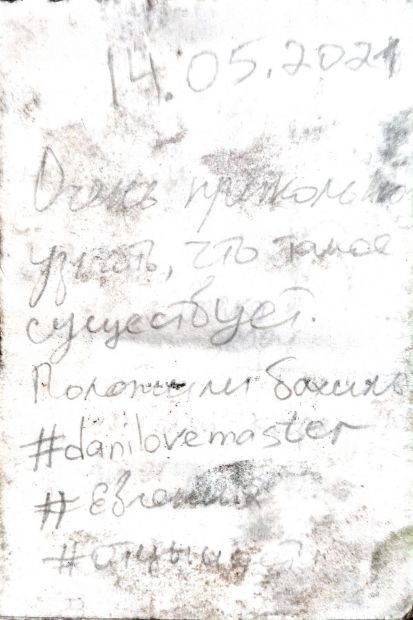 14.05.2021
Очень прикольно
узнать, что такое
существует.
Положили
#danilovemaster